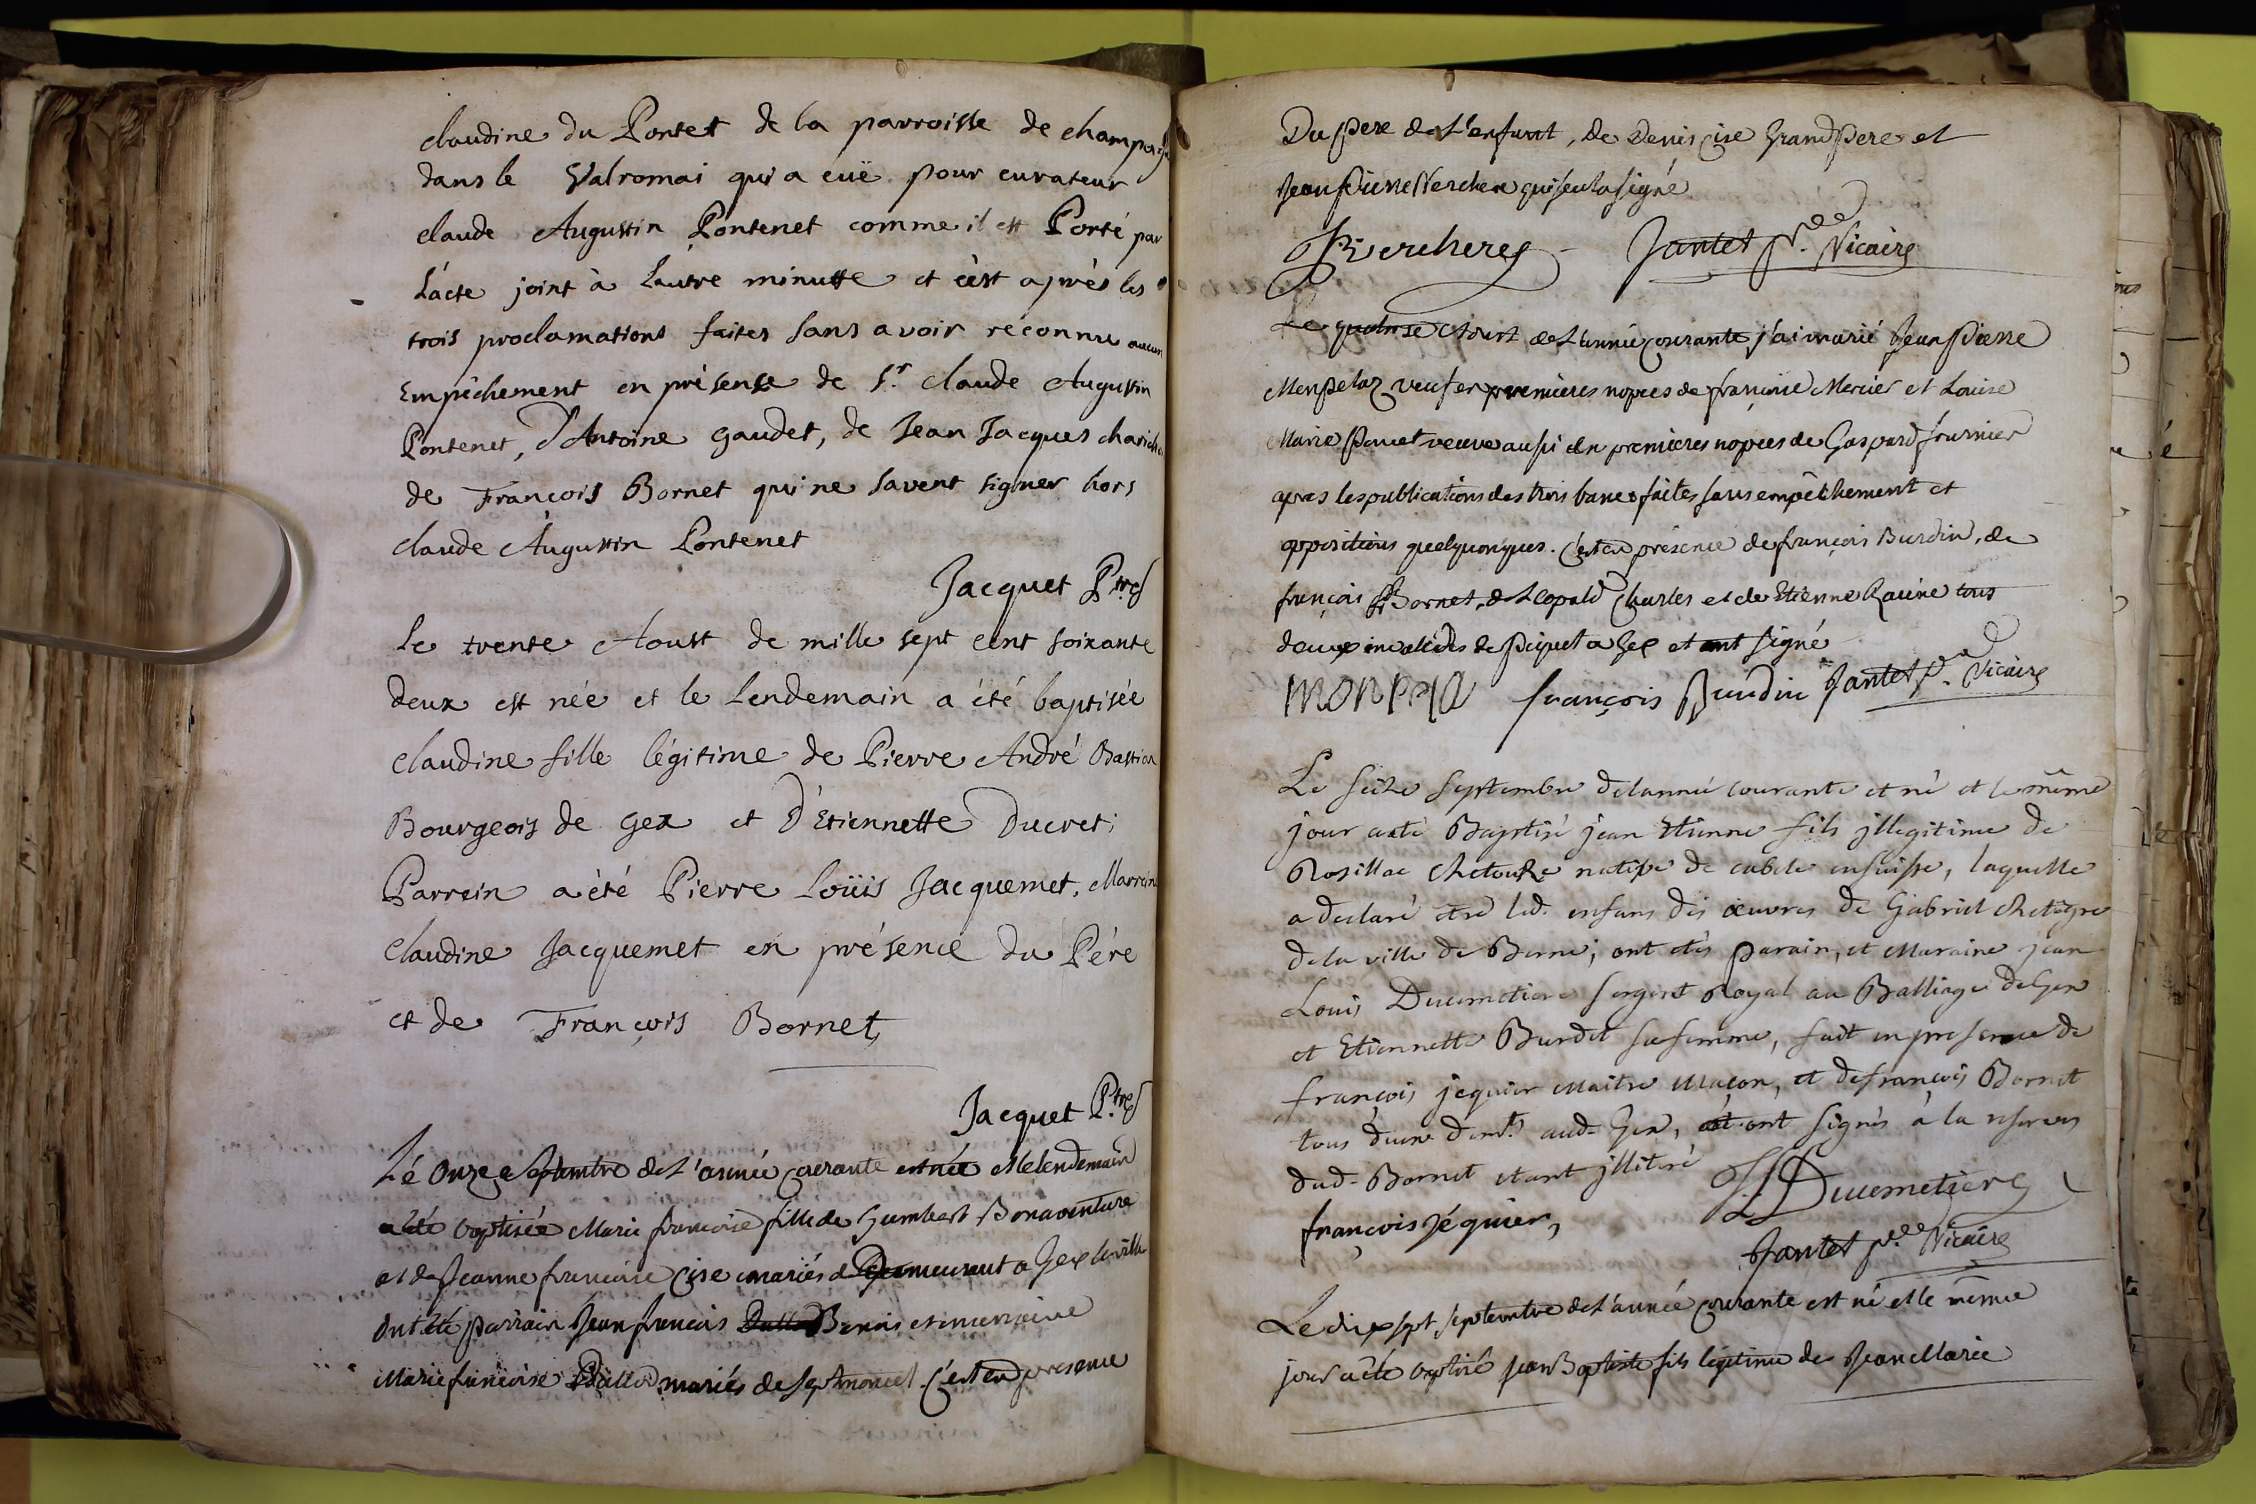 claudine du Pontet de la parroisse de
dans le Valromai qui a euë pour curateur
claude Augustin Pontenet comme il est Porté par
L'acte joint à L'autre minutte et c'est après les
trois proclamations faites sans avoir reconnu aucun
Empêchement en présense de Sr. claude Augustin
Pontenet, d'Antoine gaudet, de Jean Jacques
de François Bornet qui ne savent signer hors
claude Augustin Pontenet
Jacquet Ptre
Le trente Aoust de mille sept cent soixante
deux est née et le Lendemain a été baptisée
Claudine fille légitime de Pierre André Bastian
Bourgeois de gex et D'Etiennette Ducret;
Parrein a été Pierre Loüis Jacquemet, Marreine
Claudine Jacquemet en présence du Pére
et de François Bornet,
Jacquet Ptre
Lé Onze Septembre de L'année courante est née et le lendemain
a été baptisée Marie francoise fille de Humbert Bonaventure
et de Jeanne francoise Cise mariés demeurant a Gex la ville
ont été parrain Jean francois Benois et marraine
Marie francoise mariés de Septmoncel. C'est en presence
Du pere de L'enfant, de Denis Cise Grand Pere et
Jean Pierre Verchere qui seul a signé
Verchere Jantet pr. Vicaire
Le quatorse Aoust de L'année courante j'ai marié Jean Pierre
Monpelaz veuf en premieres nopces de francoise Mercier et Louise
Marie Panet veuve aussi en premieres nopces de Gaspard fournier
apres les publications des trois bancs faites sans empêchement et
oppositions quelquonques. C'est en présence de françois Burdin, de
françois Bornet, de Leopald Charles et de Etienne Racine tous
deux invalides de piquet a Gex et ont signé
françois Burdin Jantet p. Vicaire
Le seize Septembre de lannée courante est né et le même
jour a eté Baptisé jean Etienne fils jllegitime de
natife de en suisse, laquelle
a declaré etre led. enfans dès œuvres de Gabriel
de la ville de Berne; ont étés parain, et Maraine jean
Louis Ducimetiere sergent Royal au Balliage de Gex
et Etiennette Burdet sa femme, fait en presence de
françois jequier Maitre Maçon, et de françois Bornet
tous deux demt. aud. Gex, ont signés à la reserves
dud. Bornet etant jlliteré
françois Jéquier, Ducimetiere
Jantet p. Vicaire
Le dix sept Septembre de L'année courante est né et le même
jour a été baptisé Jean Baptiste fils légitime de Jean Marie